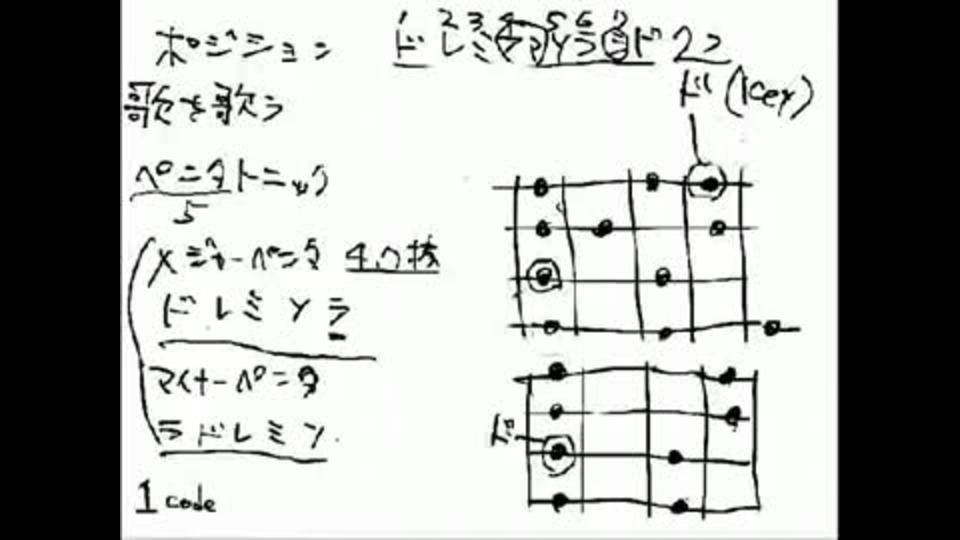 ポジション
歌を歌う
ペンタトニック
5
メジャーペンタ 4,7抜
ドレミソラ
マイナーペンタ
ラドレミソ
1 code
1 2 3 4 5 6 7
ドレミファソラシド
ド(Key)
ド